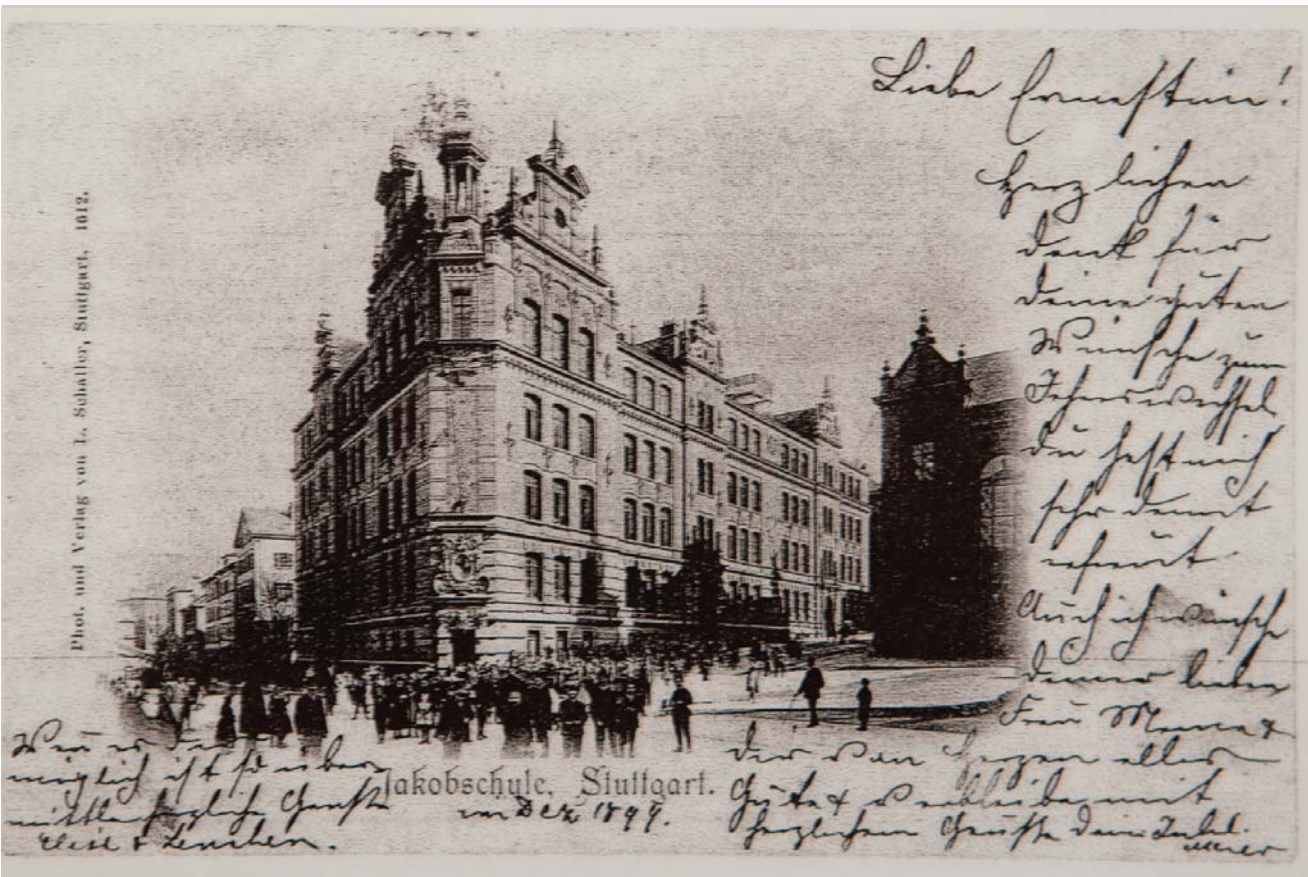 Phot. und Verlag von L. Schaller, Stuttgart. 1612.
Liebe Ernestine!
Herzlichen
Dank für
Deine guten
Wünsche zum
Jahreswechsel
Du hast mich
sehr damit
erfreut
Auch ich wünsche
Deiner lieben
Frau Mama &
Dir von Herzen alles
Gute & verbleibe mit
herzlichem Gruße Deine
möglich ist so über
mittle herzliche Grüße
Elise & Lenchen.
Jakobschule, Stuttgart.
im Dez. 1899.